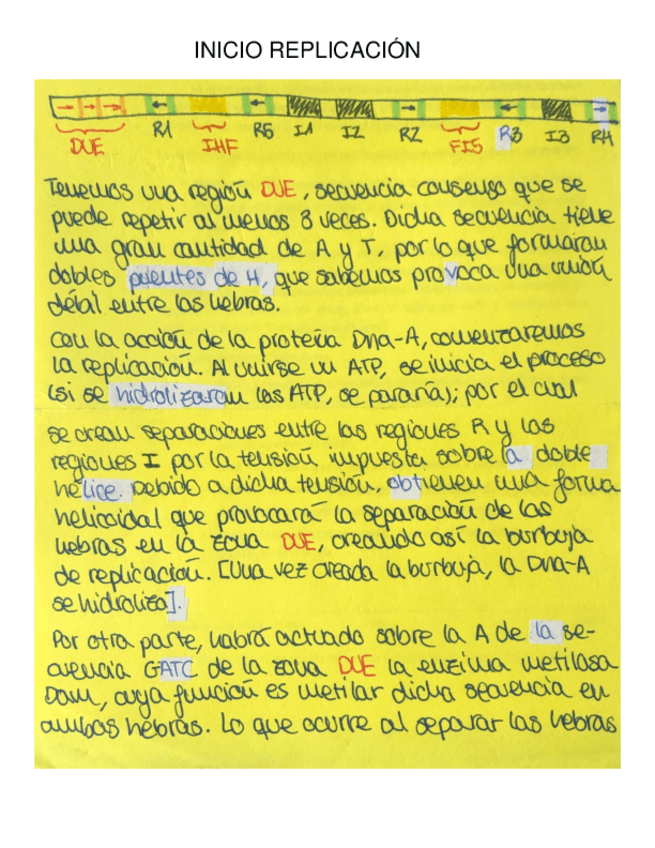 INICIO REPLICACIÓN
DUE R1 IHF R5 I1 I2 R2 FIS R3 I3 R4
Tenemos una región DUE, secuencia consenso que se
puede repetir al menos 3 veces. Dicha secuencia tiene
una gran cantidad de A y T, por lo que formaran
dobles puentes de H, que sabemos provoca una unión
débil entre las hebras.
Con la acción de la proteína Dna-A, comenzaremos
la replicación. Al unirse un ATP, se inicia el proceso
(si se hidrolizaran los ATP, se pararía); por el cual
se crean separaciones entre las regiones R y las
regiones I por la tensión impuesta sobre la doble
hélice. Debido a dicha tensión, obtienen una forma
helicoidal que provocará la separación de las
hebras en la zona DUE, creando así la burbuja
de replicación. [Una vez creada la burbuja, la Dna-A
se hidroliza].
Por otra parte, habrá actuado sobre la A de la se-
cuencia GATC de la zona DUE la enzima metilasa
Dam, cuya función es metilar dicha secuencia en
ambas hebras. Lo que ocurre al separar las hebras